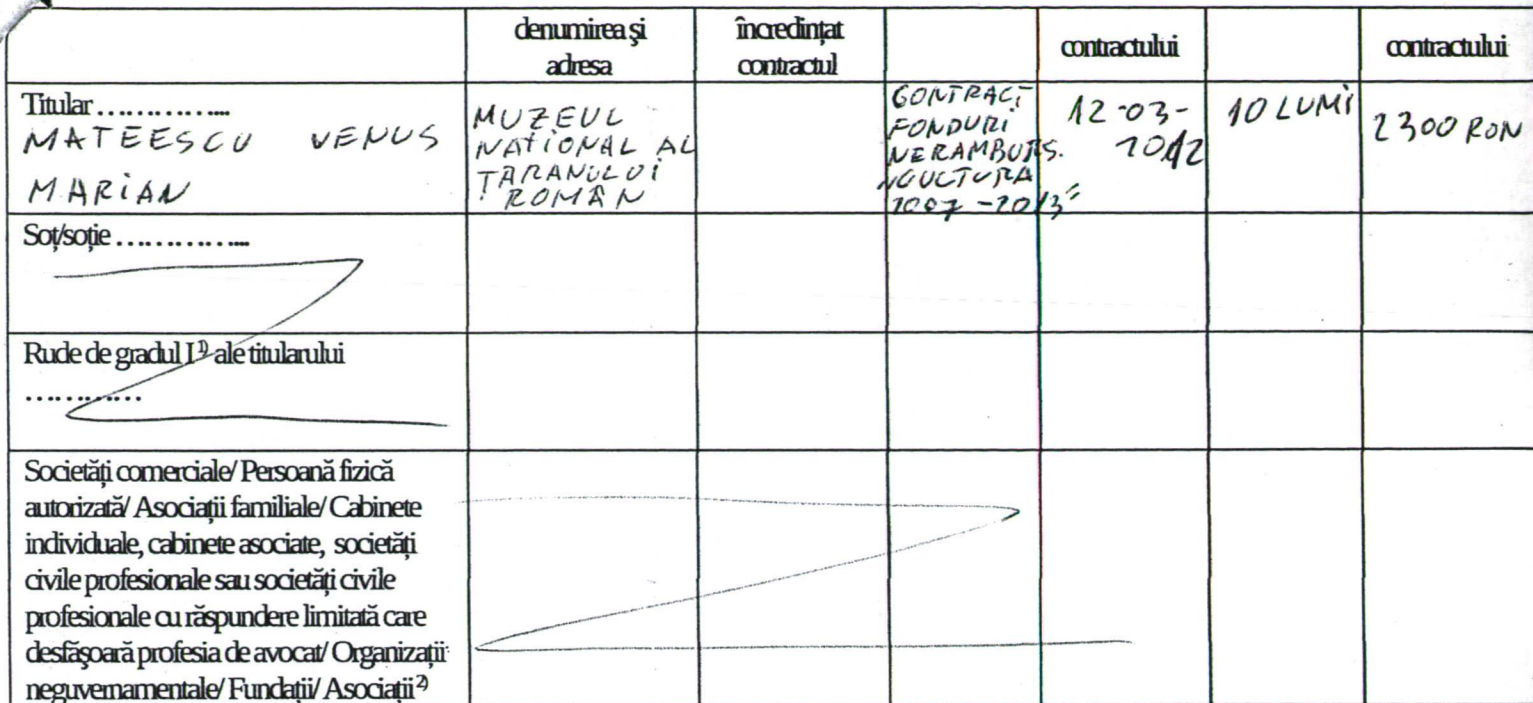 denumirea şi
adresa
încredinţat
contractul
contractului
contractului
Titular ...............
MATEESCU VENUS
MARIAN
MUZEUL
NATIONAL AL
ȚARANULUI
ROMÂN
CONTRACT
FONDURI
NERAMBURS.
2007 - 2013"
12-03-
2012
10 LUMI
2300 RON
Soţ/soţie ...............
Rude de gradul I 1) ale titularului
............
Societăţi comerciale/ Persoană fizică
autorizată/ Asociaţii familiale/ Cabinete
individuale, cabinete asociate, societăţi
civile profesionale sau societăţi civile
profesionale cu răspundere limitată care
desfăşoară profesia de avocat/ Organizaţii
neguvernamentale/ Fundaţii/ Asociaţii 2)